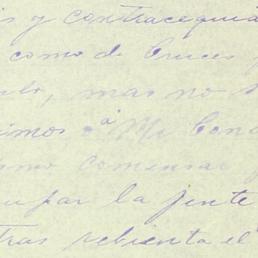 y contracequia
como de Cruces
mas no
imos á Mi Cond
ismo comensa
par la jente
tras rebienta el